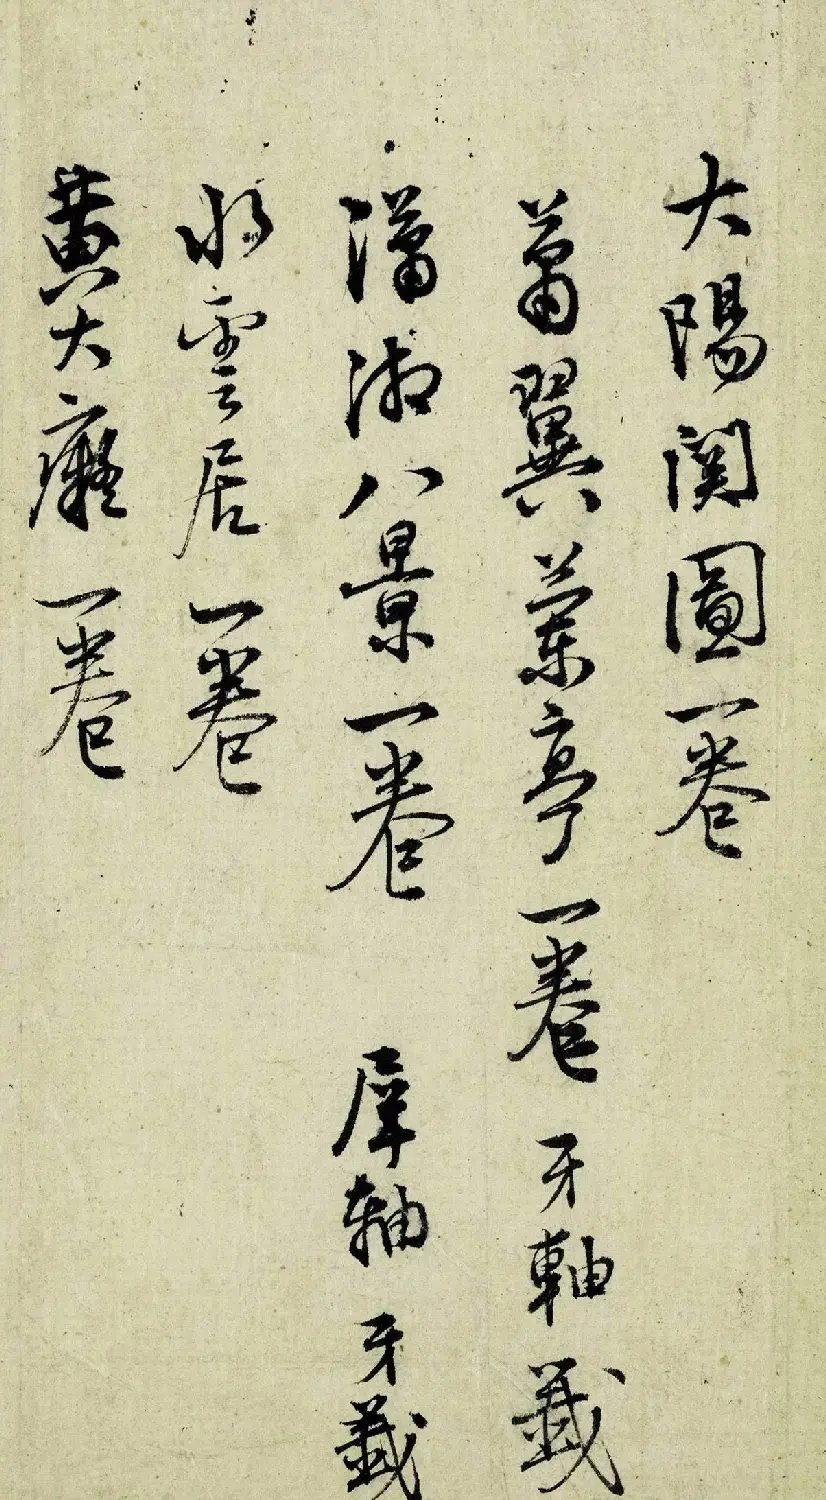 大陽関圖一卷
蕭翼蘭亭一卷 牙軸籤
瀟湘八景一卷 犀軸 牙籤
水雲居一卷
黄大癡一卷